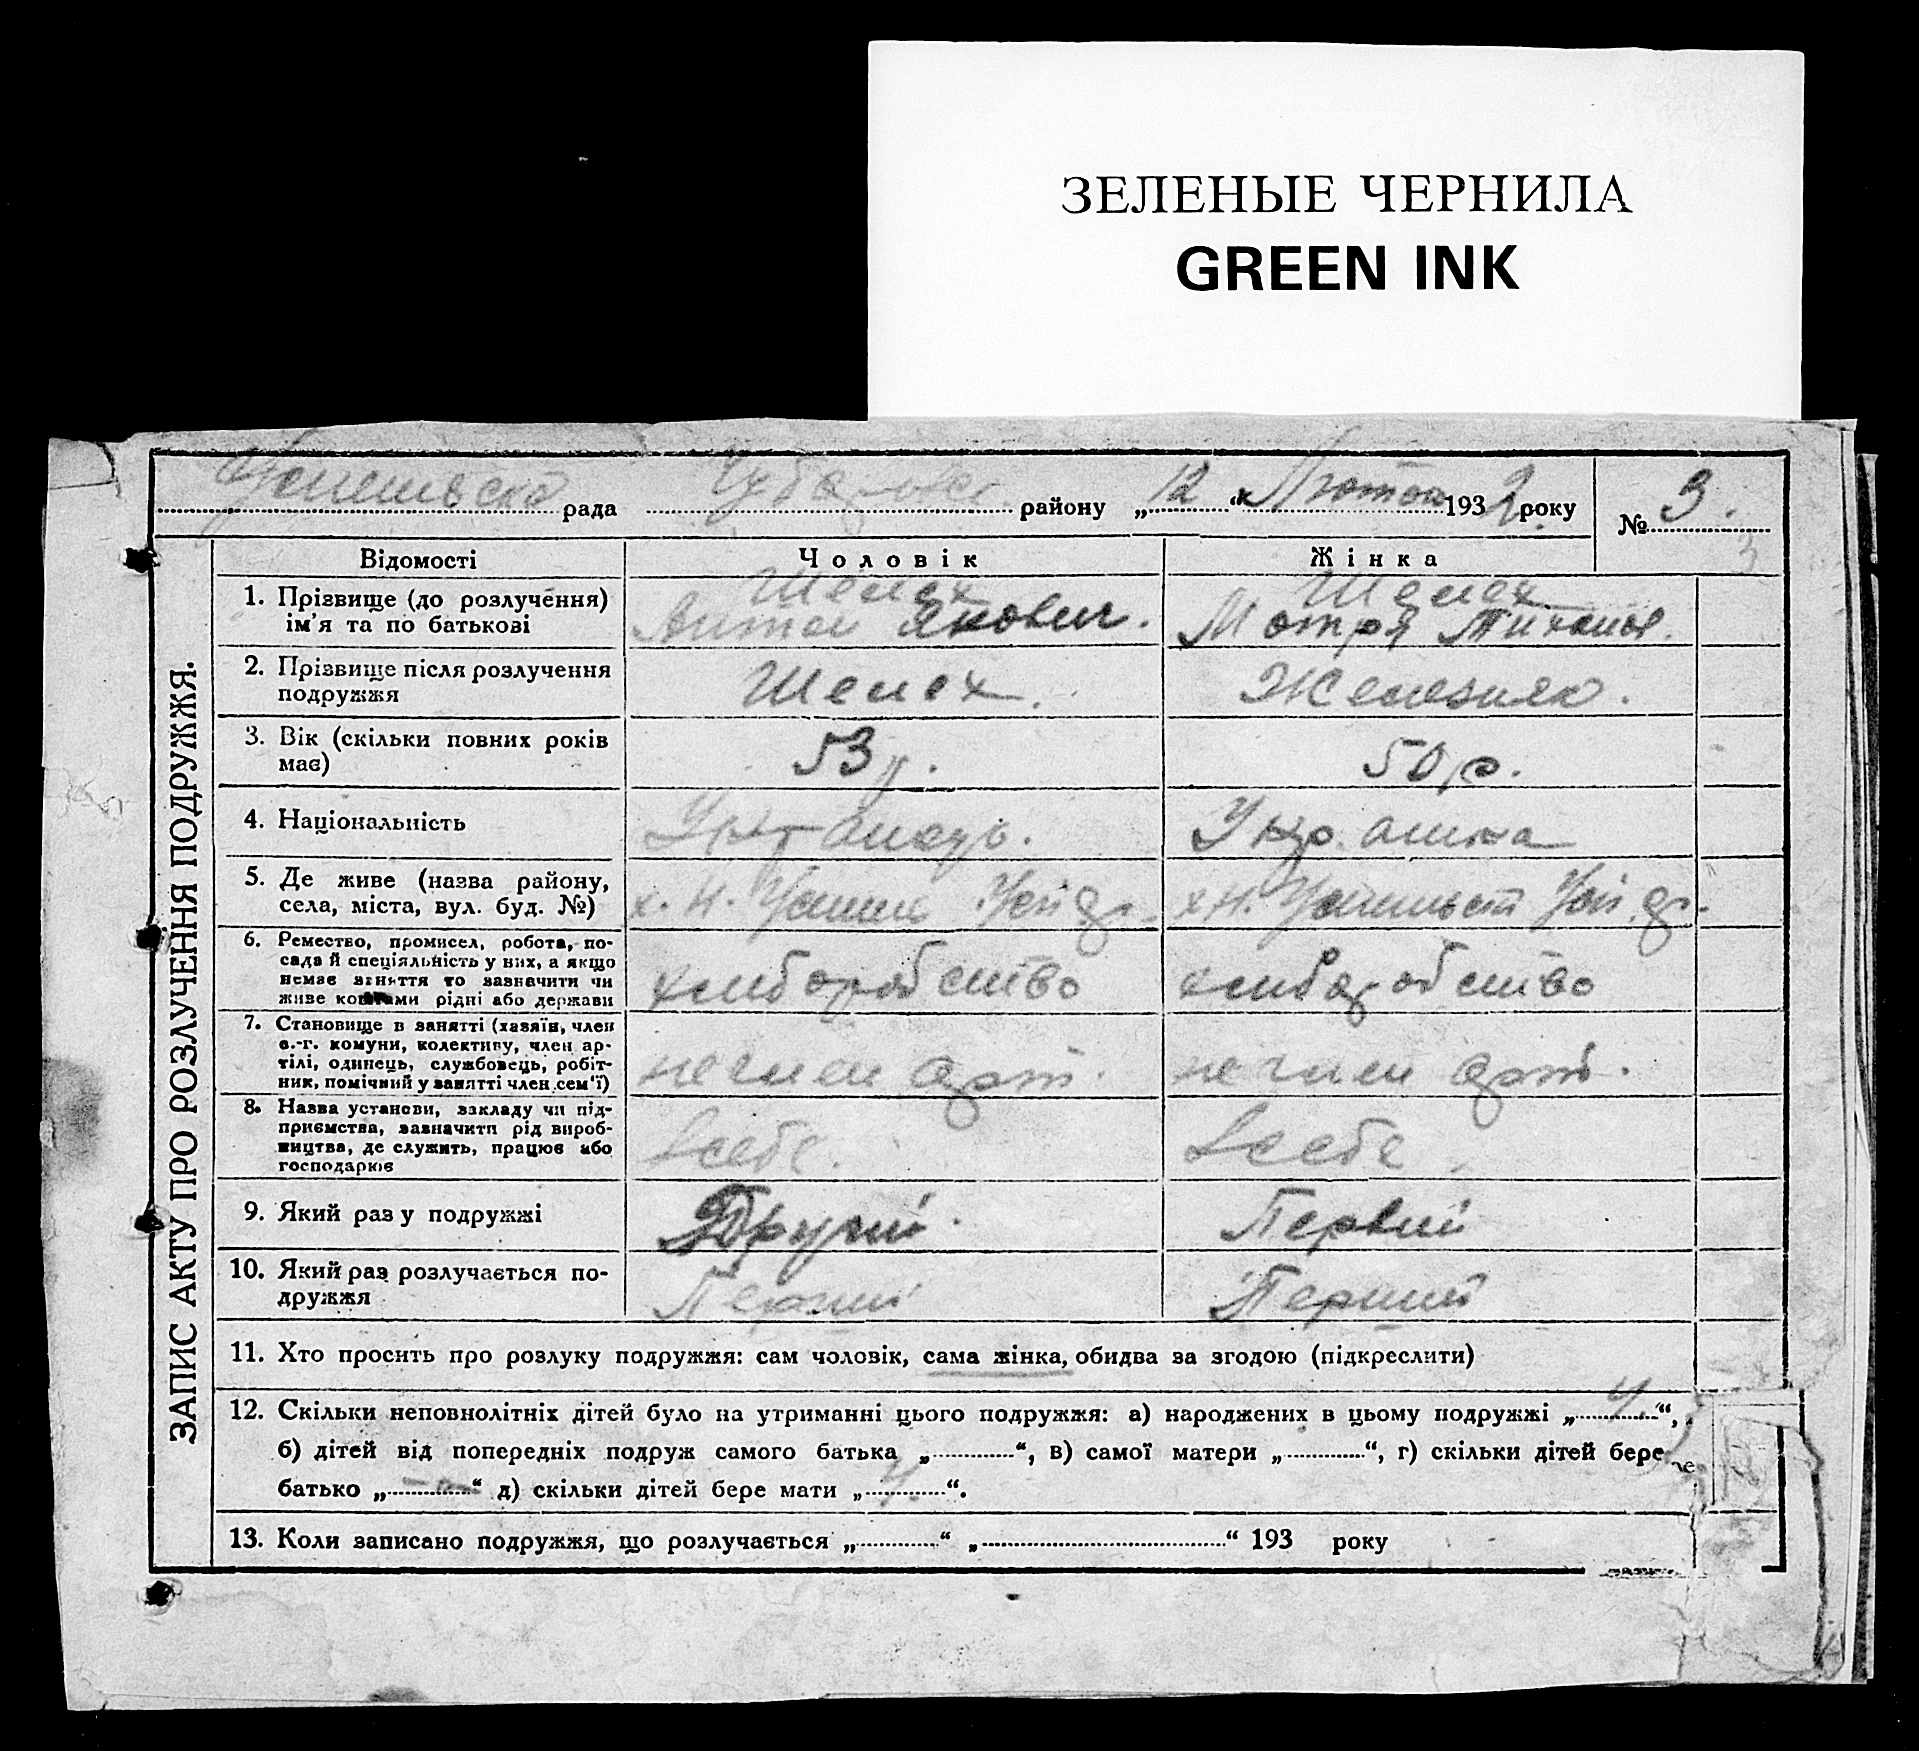 ЗЕЛЕНЫЕ ЧЕРНИЛА
GREEN INK
рада району „12“ Лютого 1932 року № 3.
3
ЗАПИС АКТУ ПРО РОЗЛУЧЕННЯ ПОДРУЖЖЯ.
Відомості Чоловік Жінка
1. Прізвище (до розлучення) ім'я та по батькові
Шелех
Антон Якович.
Шелех
Мотря
2. Прізвище після розлучення подружжя
Шелех.
Железняк.
3. Вік (скільки повних років має)
53 р.
50 р.
4. Національність
Укр.
5. Де живе (назва району, села, міста, вул. буд. №)
х. Н.
х Н.
6. Ремество, промисел, робота, по-
сада й спеціяльність у них, а якщо
немає заняття то зазначити чи
живе коштами рідні або держави
хліборобство
хліборобство
7. Становище в занятті (хазяїн, член
с.-г. комуни, колективу, член ар-
тілі, одинець, службовець, робіт-
ник, помічний у занятті член сем'ї)
не член арт.
не член арт.
8. Назва установи, закладу чи під-
приємства, зазначити рід вироб-
ництва, де служить, працює або
господарює
в себе.
в себе.
9. Який раз у подружжі
Другий.
Первий
10. Який раз розлучається по-
дружжя
Перший
Перший
11. Хто просить про розлуку подружжя: сам чоловік, сама жінка, обидва за згодою (підкреслити)
12. Скільки неповнолітніх дітей було на утриманні цього подружжя: а) народжених в цьому подружжі „4“,
б) дітей від попередніх подруж самого батька „............“, в) самої матери „............“, г) скільки дітей бере
батько „............“ д) скільки дітей бере мати „4“.
13. Коли записано подружжя, що розлучається „............“ „..............................“ 193 року